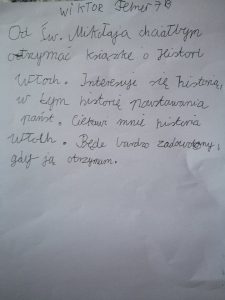 Wiktor Pelner 7B
Od Św. Mikołaja chciałbym
otrzymać książkę o Historii
Włoch. Interesuję się historią,
w tym historią powstawania
państ. Ciekawi mnie historia
Włoch. Będę bardzo zadowolony,
gdy ją otrzymam.